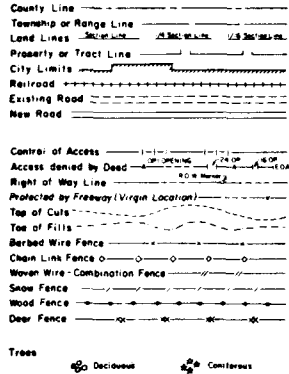 County Line
Township or Range Line
Land Lines Section Line 1/4 Section Line 1/16 Section Line
Property or Tract Line
City Limits
Railroad
Existing Road
New Road
Control of Access
OP. OPENING 24 OP 16 OP
Access denied by Deed E.O.A.
R.O.W. Marker
Right of Way Line
Protected by Freeway (Virgin Location)
Top of Cuts
Toe of Fills
Barbed Wire Fence
Chain Link Fence
Woven Wire-Combination Fence
Snow Fence
Wood Fence
Deer Fence
Trees
Deciduous Coniferous